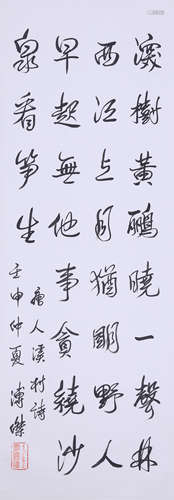 深樹黃鸝曉一聲林
西江上月猶明野人
早起無他事貪繞沙
泉看笋生
唐人溪村詩
壬申仲夏 溥傑